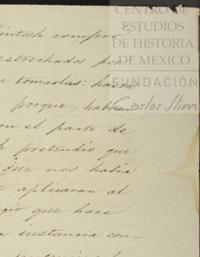 CENTRO DE
ESTUDIOS
DE HISTORIA
DE MEXICO
FUNDACIÓN
Carlos Slim
intosh compró
estrechados por
tomarlas:
porque, habian
el pacto de
pretendió que
que nos habia
aplicaran al
que hace
instancia con-